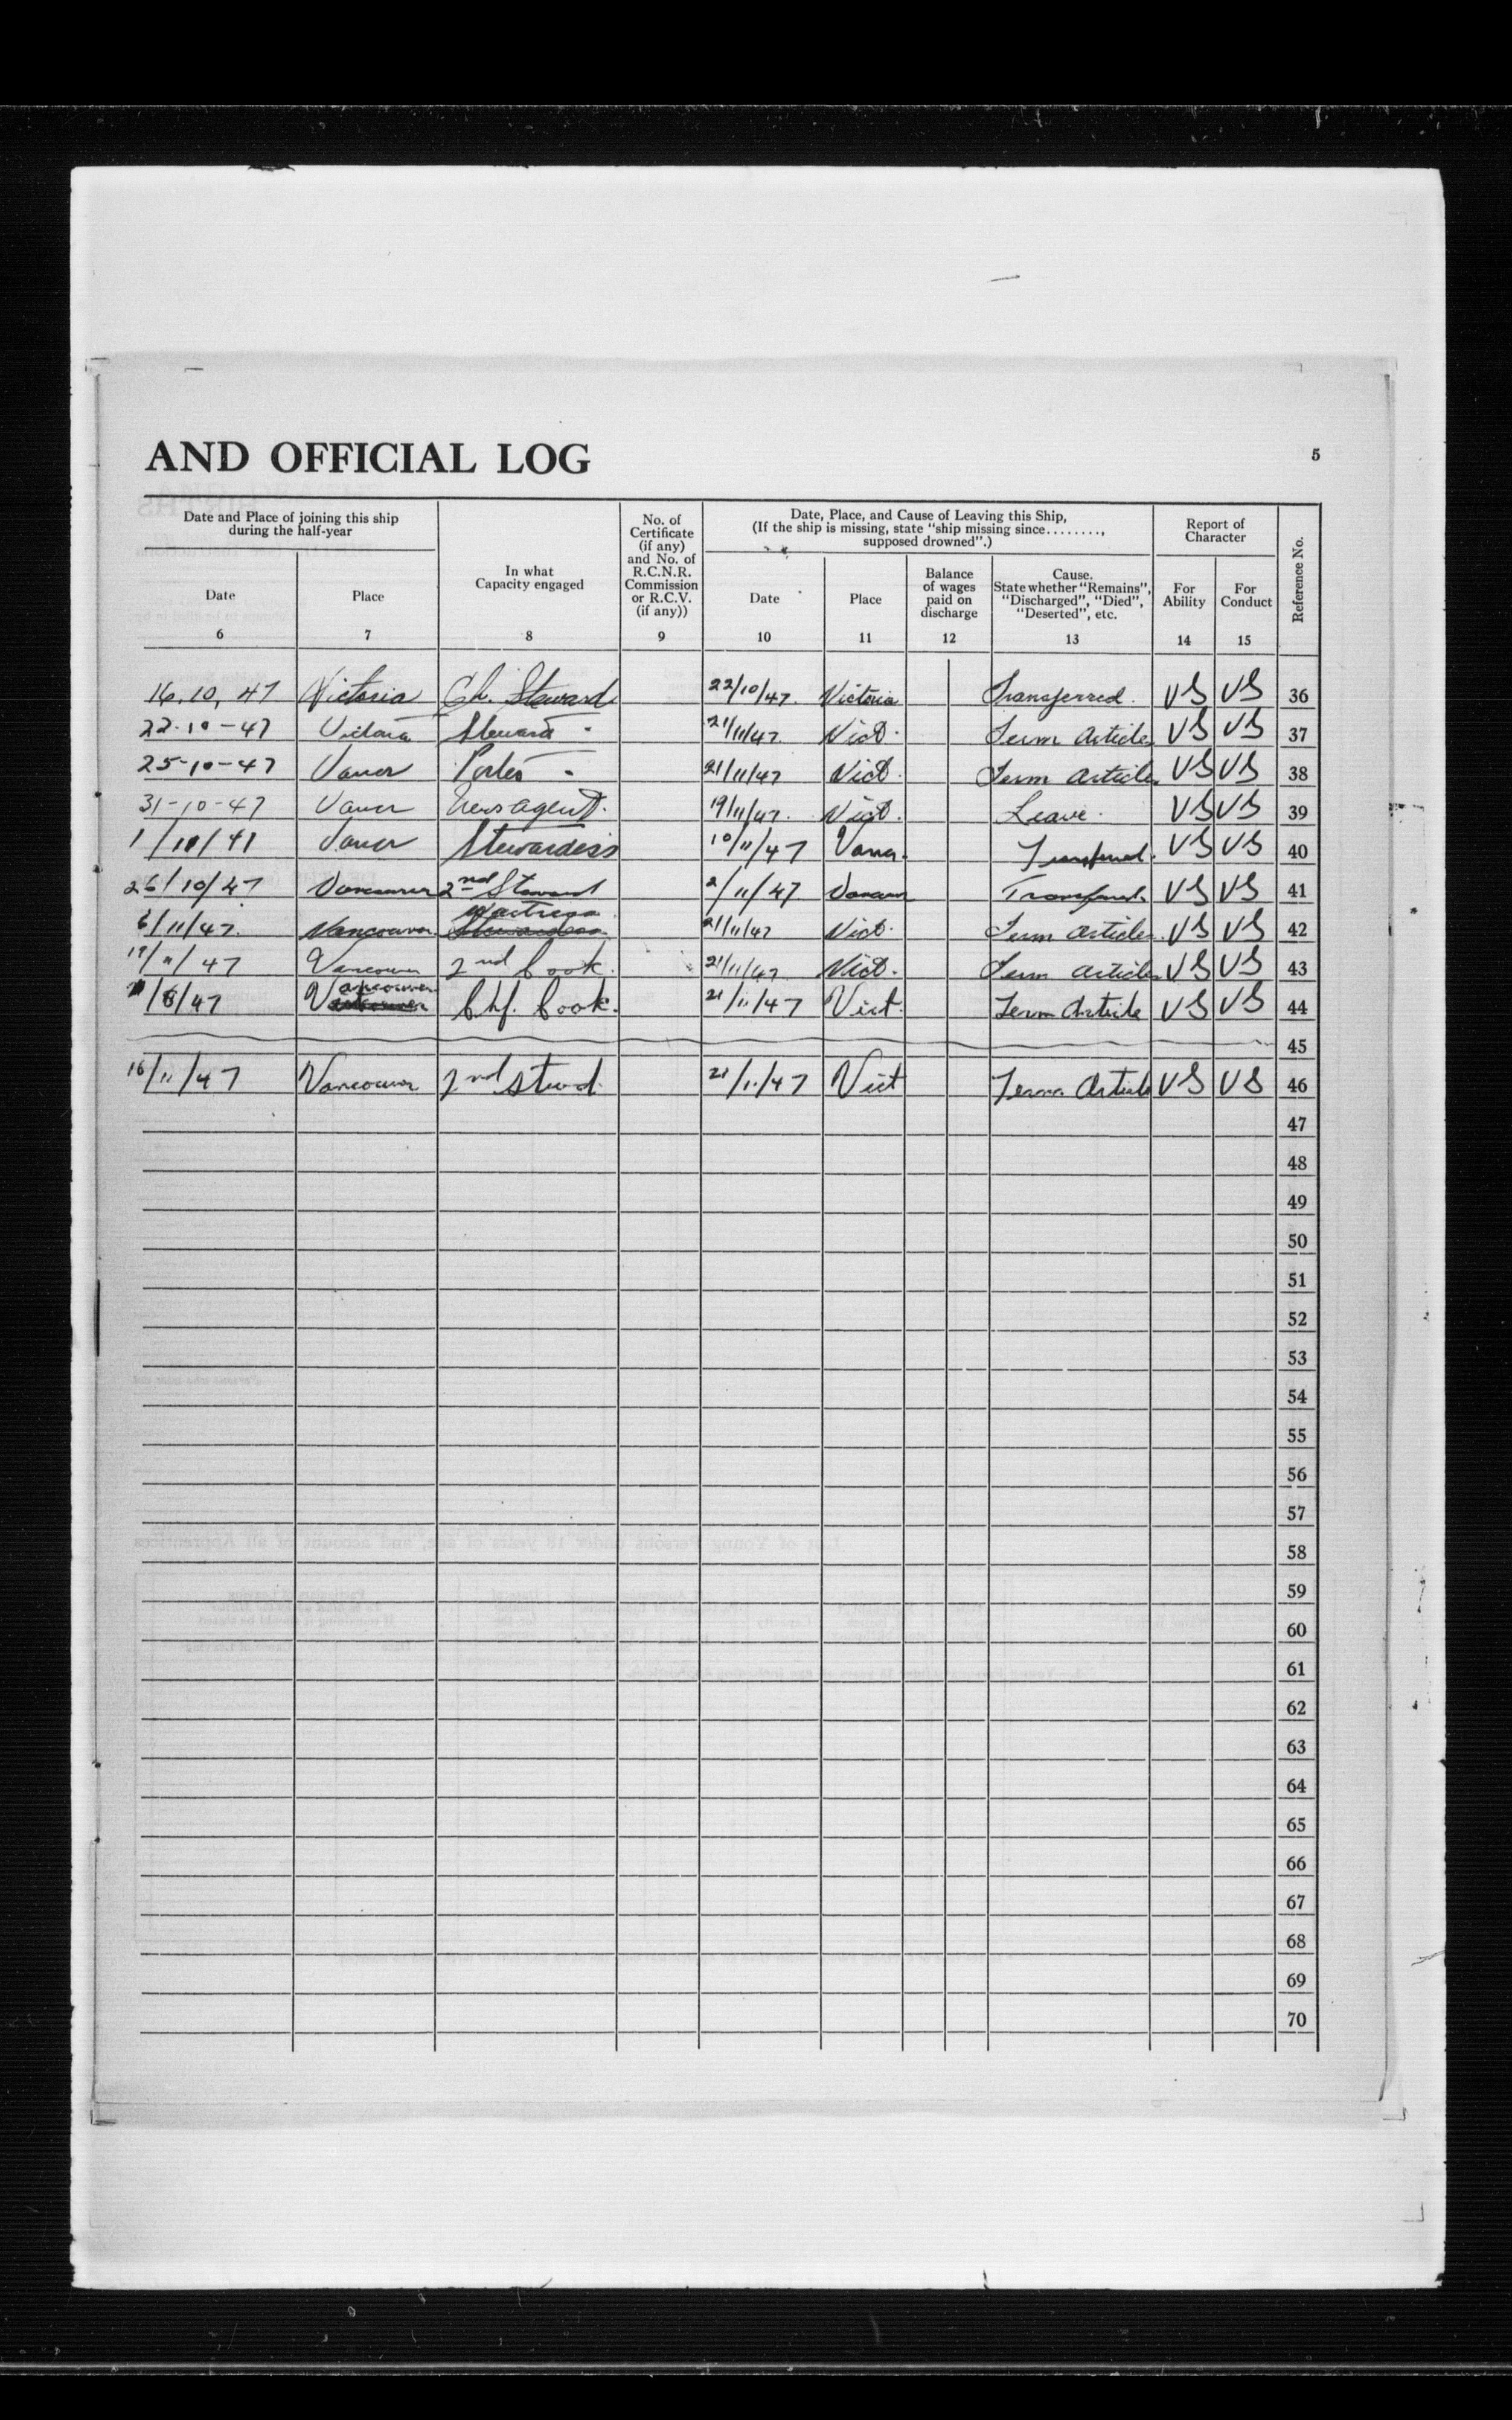 AND OFFICIAL LOG 5
Date and Place of joining this ship during the half-year
In what Capacity engaged
No. of Certificate (if any) and No. of R.C.N.R. Commission or R.C.V. (if any))
Date, Place, and Cause of Leaving this Ship, (If the ship is missing, state "ship missing since........, supposed drowned".)
Report of Character
Reference No.
Date Place Date Place Balance of wages paid on discharge Cause. State whether "Remains", "Discharged", "Died", "Deserted", etc. For Ability For Conduct
6 7 8 9 10 11 12 13 14 15
16.10.47 Victoria Ch. Steward 22/10/47. Victoria Transferred. VS VS 36
22-10-47 Victoria Steward 21/11/47. Vict. Term Article VS VS 37
25-10-47 Vancr Porter 21/11/47 Vict. Term Article VS VS 38
31-10-47 Vancr Newsagent. 19/11/47. Vict. Leave. VS VS 39
1/10/41 Vancr Stewardess 10/11/47 Vancr. Transferred. VS VS 40
26/10/47 Vancouver 2nd Steward 2/11/47 Vancouver Transferred. VS VS 41
6/11/47. Vancouver. Waitress Stewardess 21/11/47 Vict. Term Article. VS VS 42
/11/47 Vancouver 2nd Cook. 21/11/47 Vict. Term Article VS VS 43
/8/47 Vancouver Chf. Cook. 21/11/47 Vict. Term Article VS VS 44
45
16/11/47 Vancouver 2nd Stwd. 21/11/47 Vict Term. Article VS VS 46
47
48
49
50
51
52
53
54
55
56
57
58
59
60
61
62
63
64
65
66
67
68
69
70